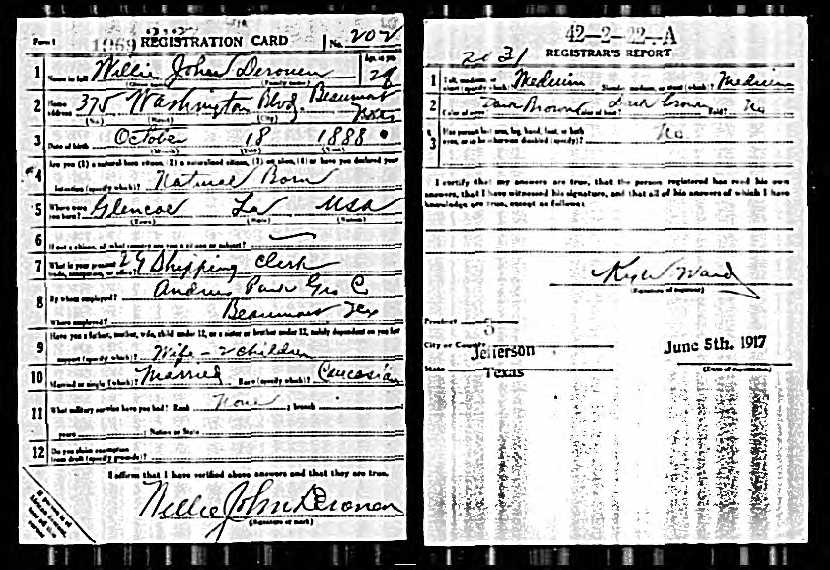 Form 1 1969 REGISTRATION CARD No. 202
1 Name in full Willie John Deronen Age, in yrs 28
(Given name) (Family name)
2 Home address 375 Washington Blvd. Beaumont Texas
(No.) (Street) (City) (State)
3 Date of birth October 18 1888
(Month) (Day) (Year)
Are you (1) a natural born citizen, (2) a naturalized citizen, (3) an alien, (4) or have you declared your
4 intention (specify which)? Natural Born
5 Where were you born? Glencoe La USA
(Town) (State) (Nation)
6 If not a citizen, of what country are you a citizen or subject?
7 What is your present trade, occupation, or office? 29 Shipping Clerk
8 By whom employed? Gro C
Where employed? Beaumont Tex
Have you a father, mother, wife, child under 12, or a sister or brother under 12, solely dependent on you for
9 support (specify which)? Wife - 2 children
10 Married or single (which)? Married Race (specify which)? Caucasian
11 What military service have you had? Rank None ; branch
years Nation or State
12 Do you claim exemption from draft (specify grounds)?
I affirm that I have verified above answers and that they are true.
Willie John Deronen
(Signature or mark)
42-2-22-A
REGISTRAR'S REPORT
1 Tall, medium, or short (specify which)? Medium Slender, medium, or stout (which)? Medium
2 Color of eyes? Dark Brown Color of hair? Dark brown Bald? No
3 Has person lost arm, leg, hand, foot, or both eyes, or is he otherwise disabled (specify)? No.
I certify that my answers are true, that the person registered has read his own
answers, that I have witnessed his signature, and that all of his answers of which I have
knowledge are true, except as follows:
Ward
(Signature of registrar)
Precinct 5
City or County Jefferson
State Texas
June 5th. 1917
(Date of registration)